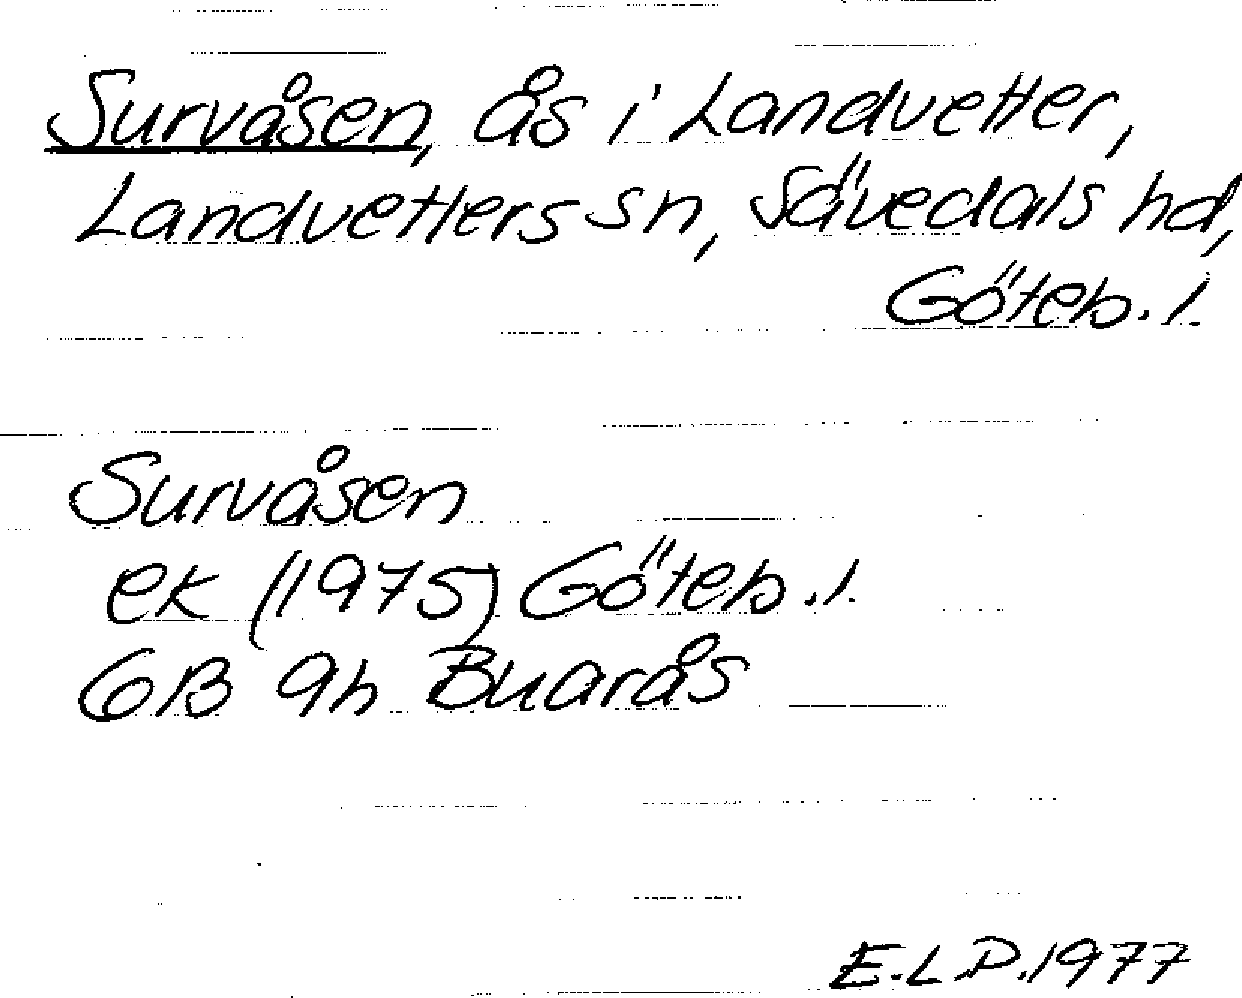 Survåsen, ås i Landvetter,
Landvetters sn, Sävedals hd,
Göteb. l.
Survåsen
ek (1975) Göteb. l.
6B 9h Buarås
E.L.D. 1977